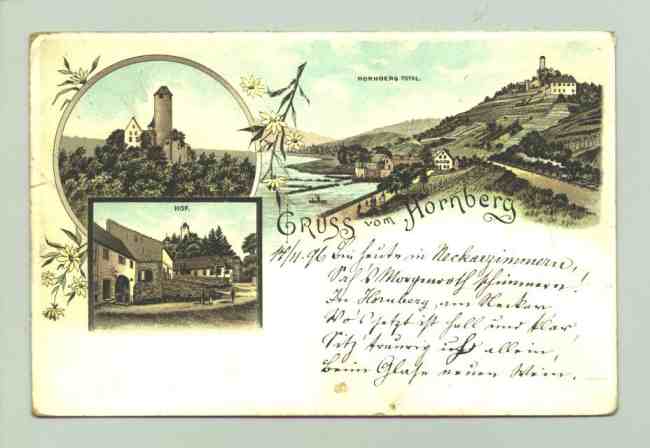 HORNBERG TOTAL.
HOF.
GRUSS vom Hornberg
14/11. 96 Bin heute in Neckarzimmern,
Sah's Morgenroth schimmern!
In Hornberg, am Neckar
Wo's jetzt ist hell und klar,
Sitz' traurig ich allein,
Beim Glase neuen Wein.